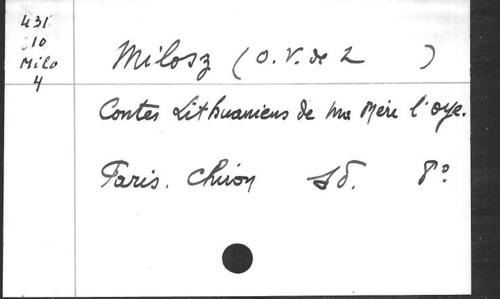 431
10
Milo
4
Milosz (O.V. de L )
Contes Lithuaniens de ma Mère l'oye.
Paris. Chiron Sd. 8º